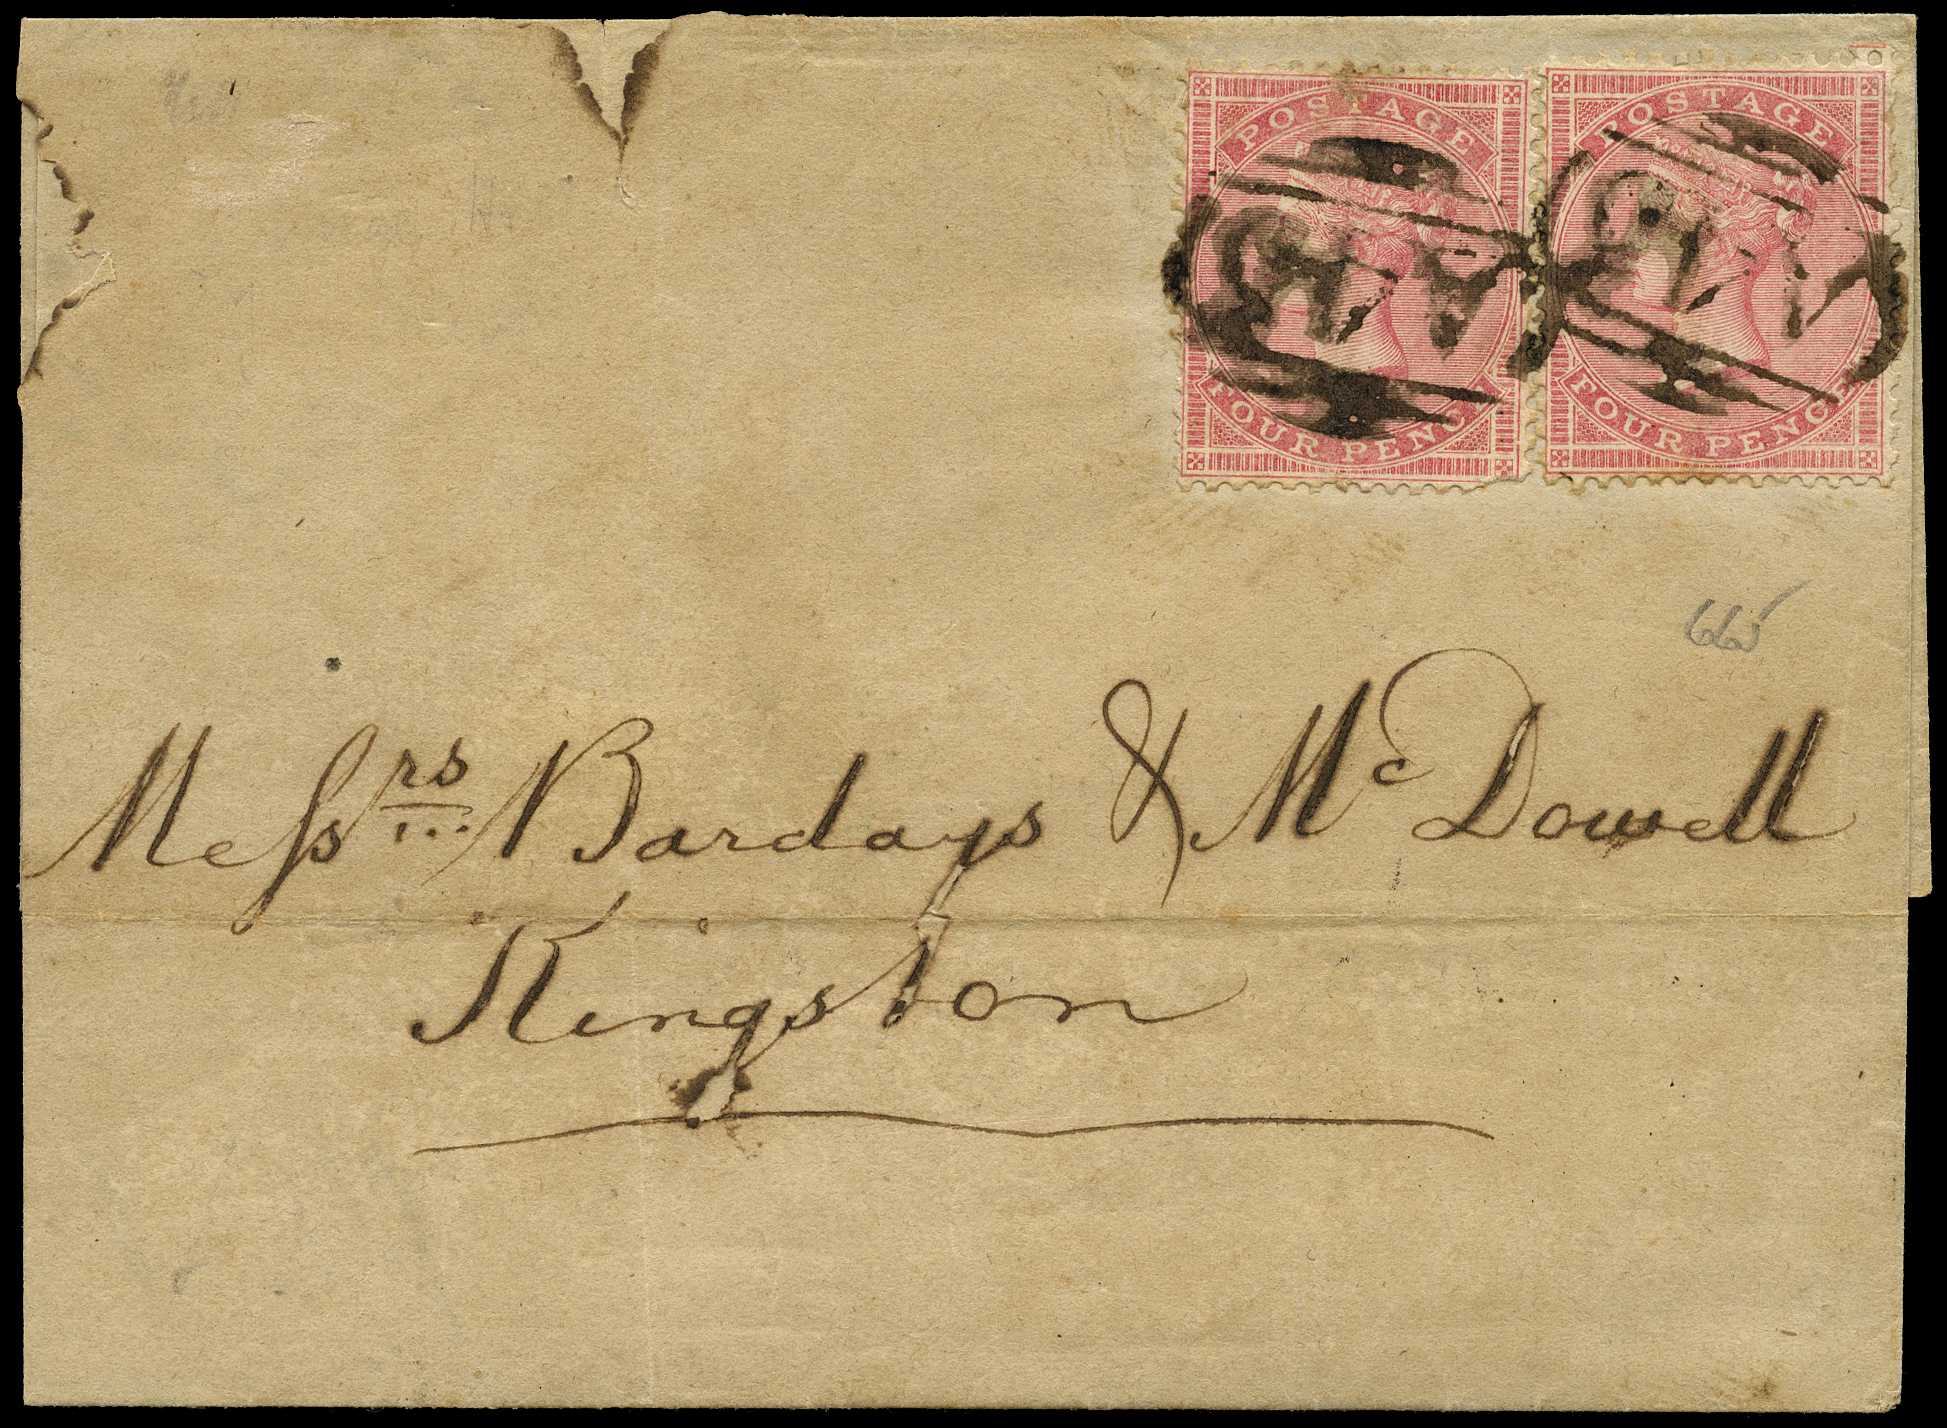 POSTAGE
FOUR PENCE
POSTAGE
FOUR PENCE
665
Messrs Barclays & McDowell
Kingston